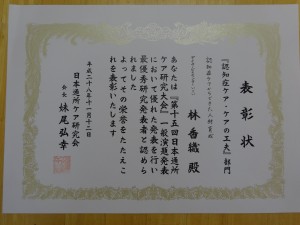 表彰状
『認知症ケア・ケアの工夫』部門
林香織 殿
あなたは『第十五回日本通所
ケア研究大会』一般演題発表
において優れた発表を行い
最優秀研究発表者と認めら
れました
よってその栄誉をたたえこ
れを表彰いたします
平成二十八年十一月十二日
日本通所ケア研究会
会長 妹尾弘幸